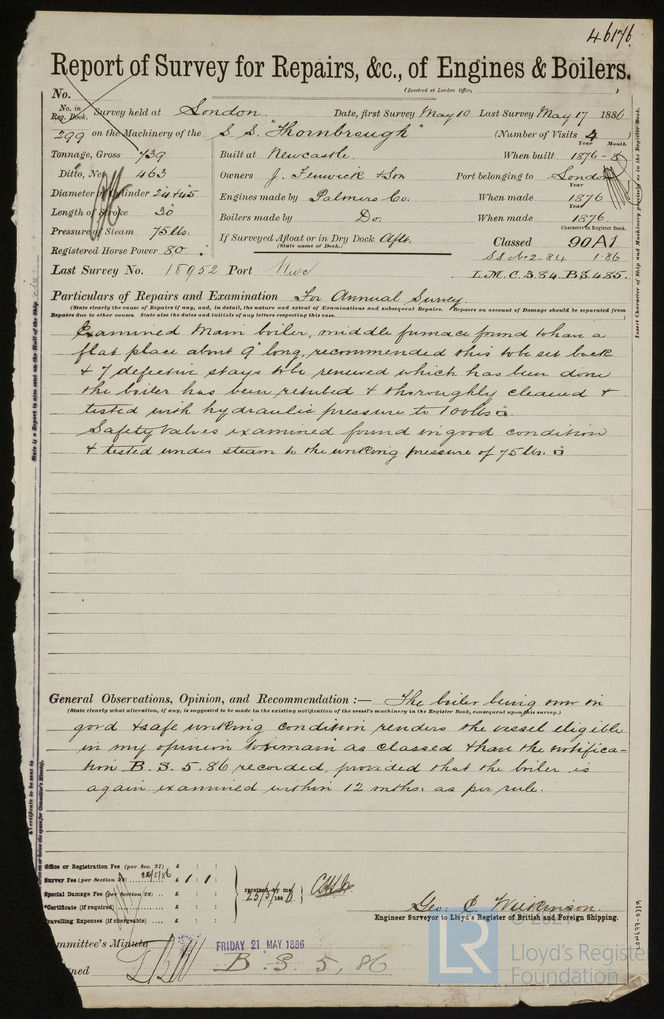 46176
Report of Survey for Repairs, &c., of Engines & Boilers.
(Received at London Office,
No.
No. in Reg. Book. Survey held at London. Date, first Survey May 10 Last Survey May 17 1886
299 on the Machinery of the S. S. "Thornbrough" (Number of Visits 4)
Year Month
Tonnage, Gross 739 Built at Newcastle. When built 1876-8
Ditto, Net 463 Owners J. Fenwick & Son Port belonging to London
Year
Diameter of Cylinder 24 & 45 Engines made by Palmers Co. When made 1876
Year
Length of Stroke 30 Boilers made by Do. When made 1876.
Character in Register Book.
Pressure of Steam 75 lbs. If Surveyed Afloat or in Dry Dock Aflt. Classed 90A1
(State name of Dock.)
Registered Horse Power 80 SS No 2-84 1-86
Last Survey No. 18952 Port Nwc L.M.C. 3.84. B.S. 4.85.
Particulars of Repairs and Examination For Annual Survey.
(State clearly the cause of Repairs if any, and, in detail, the nature and extent of Examinations and subsequent Repairs. Repairs on account of Damage should be separated from
Repairs due to other causes. State also the dates and initials of any letters respecting this case.
Examined Main boiler, middle furnace found to have a
flat place about 9" long, recommended this to be set back
& 7 defective stays to be renewed which has been done
the boiler has been retubed & thoroughly cleaned &
tested with hydraulic pressure to 100 lbs □.
Safety Valves examined found in good condition
& tested under steam to the working pressure of 75 lbs. □
General Observations, Opinion, and Recommendation :— The boiler being now in
(State clearly what alteration, if any, is suggested to be made in the existing notification of the vessel's machinery in the Register Book, consequent upon this survey.)
good & safe working condition renders the vessel eligible
in my opinion to remain as classed & have the notifica-
tion B. S. 5. 86 recorded, provided that the boiler is
again examined within 12 mths. as per rule.
Office or Registration Fee (per Sec. 27) £ : :
Survey Fee (per Section 28) £ 1 : 1 :
Special Damage Fee (per Section 28) £ : :
*Certificate (if required) £ : :
Travelling Expenses (if chargeable) £ : :
received by me,
Geo. C. Wilkinson.
Engineer Surveyor to Lloyd's Register of British and Foreign Shipping.
Committee's Minute FRIDAY 21 MAY 1886
B. S. 5, 86
Insert Character of Ship and Machinery precisely as in the Register Book.
State if a Report is also sent on the Hull of the Ship
LR
© 2021
Lloyd's Register
Foundation